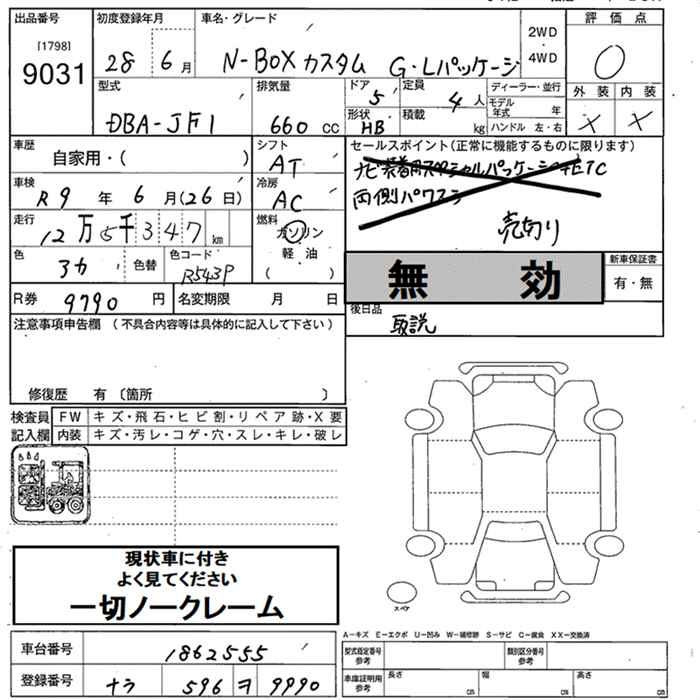 出品番号 初度登録年月 車名・グレード 評価点
[1798]
9031 28 6月 N-BOX カスタム G・Lパッケージ 2WD
・
4WD
型式 排気量 ドア 定員 ディーラー・並行 外装 内装
DBA-JF1 660 CC 5 4人 モデル年式 年 × ×
形状 積載
HB kg ハンドル 左・右
車歴 シフト セールスポイント(正常に機能するものに限ります)
自家用・( ) AT ナビ装着用スペシャルパッケージ+ETC
車検 冷房 両側パワスラ
R9年6月(26日) AC 売切り
走行 燃料
12万5千347km ガソリン
軽油
( )
色 色替 色コード 新車保証書
3カ R543P 無効 有・無
R券 9790円 名変期限 月 日 後日品
取説
注意事項申告欄 (不具合内容等は具体的に記入して下さい)
修復歴 有〔箇所 〕
検査員 FW キズ・飛石・ヒビ割・リペア跡・X要
記入欄 内装 キズ・汚レ・コゲ・穴・スレ・キレ・破レ
現状車に付き
よく見てください
一切ノークレーム
スペア
A-キズ E-エクボ U-凹み W-補修跡 S-サビ C-腐食 XX-交換済
車台番号 1862555 型式指定番号 参考 類別区分番号 参考
登録番号 ナラ 596 ヲ 9990 車庫証明用 参考 長さ cm 幅 cm 高さ cm